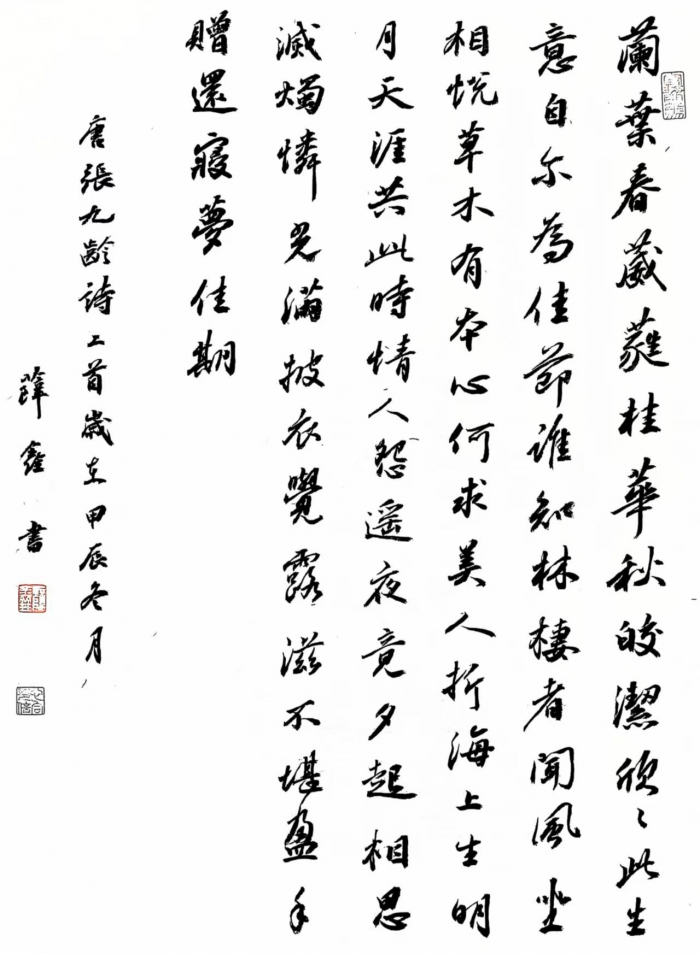 蘭葉春葳蕤桂華秋皎潔欣〻此生
意自尔為佳節誰知林棲者聞風坐
相悦草木有本心何求美人折海上生明
月天涯共此時情人怨遥夜竟夕起相思
滅燭憐光滿披衣覺露滋不堪盈手
贈還寢夢佳期
唐張九齡詩二首歲在甲辰冬月
薛鑫書